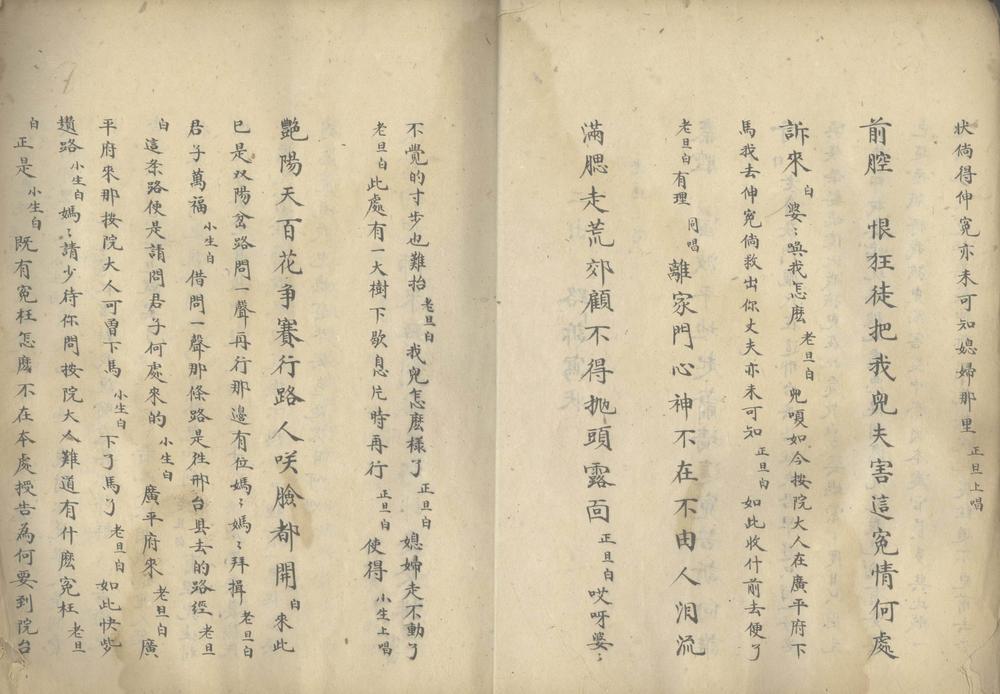 狀倘得伸冤亦未可知媳婦那里 正旦上唱
前腔 恨狂徒把我兒夫害這冤情何處
訴來 白 婆〻喚我怎麽 老旦白 兒嗄如今按院大人在廣平府下
馬我去伸冤倘救出你丈夫亦未可知 正旦白 如此收什前去便了
老旦白 有理 同唱 離家門心神不在不由人泪流
滿腮走荒郊顧不得拋頭露面 正旦白 哎呀婆〻
不覺的寸步也難抬 老旦白 我兒怎麽樣了 正旦白 媳婦走不動了
老旦白 此處有一大樹下歇息片時再行 正旦白 使得 小生上唱
艷陽天百花争賽行路人咲臉都開 白 來此
已是双陽岔路問一聲再行那邊有位媽〻媽〻拜揖 老旦白
君子萬福 小生白 借問一聲那條路是徃邢台县去的路經 老旦
白 這条路便是請問君子何處來的 小生白 廣平府來 老旦白 廣
平府來那按院大人可曾下馬 小生白 下了馬了 老旦白 如此快些
趲路 小生白 媽〻請少待你問按院大人難道有什麽冤枉 老旦
白 正是 小生白 既有冤枉怎麽不在本處授告為何要到院台